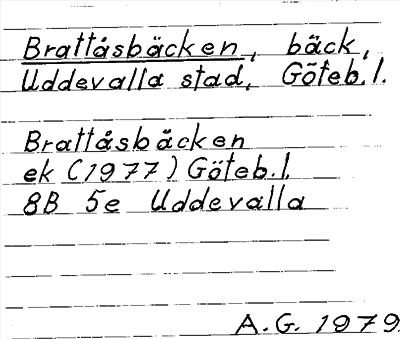 Brattåsbäcken, bäck,
Uddevalla stad, Göteb.l.
Brattåsbäcken
ek (1977) Göteb.l.
8B 5e Uddevalla
A.G. 1979